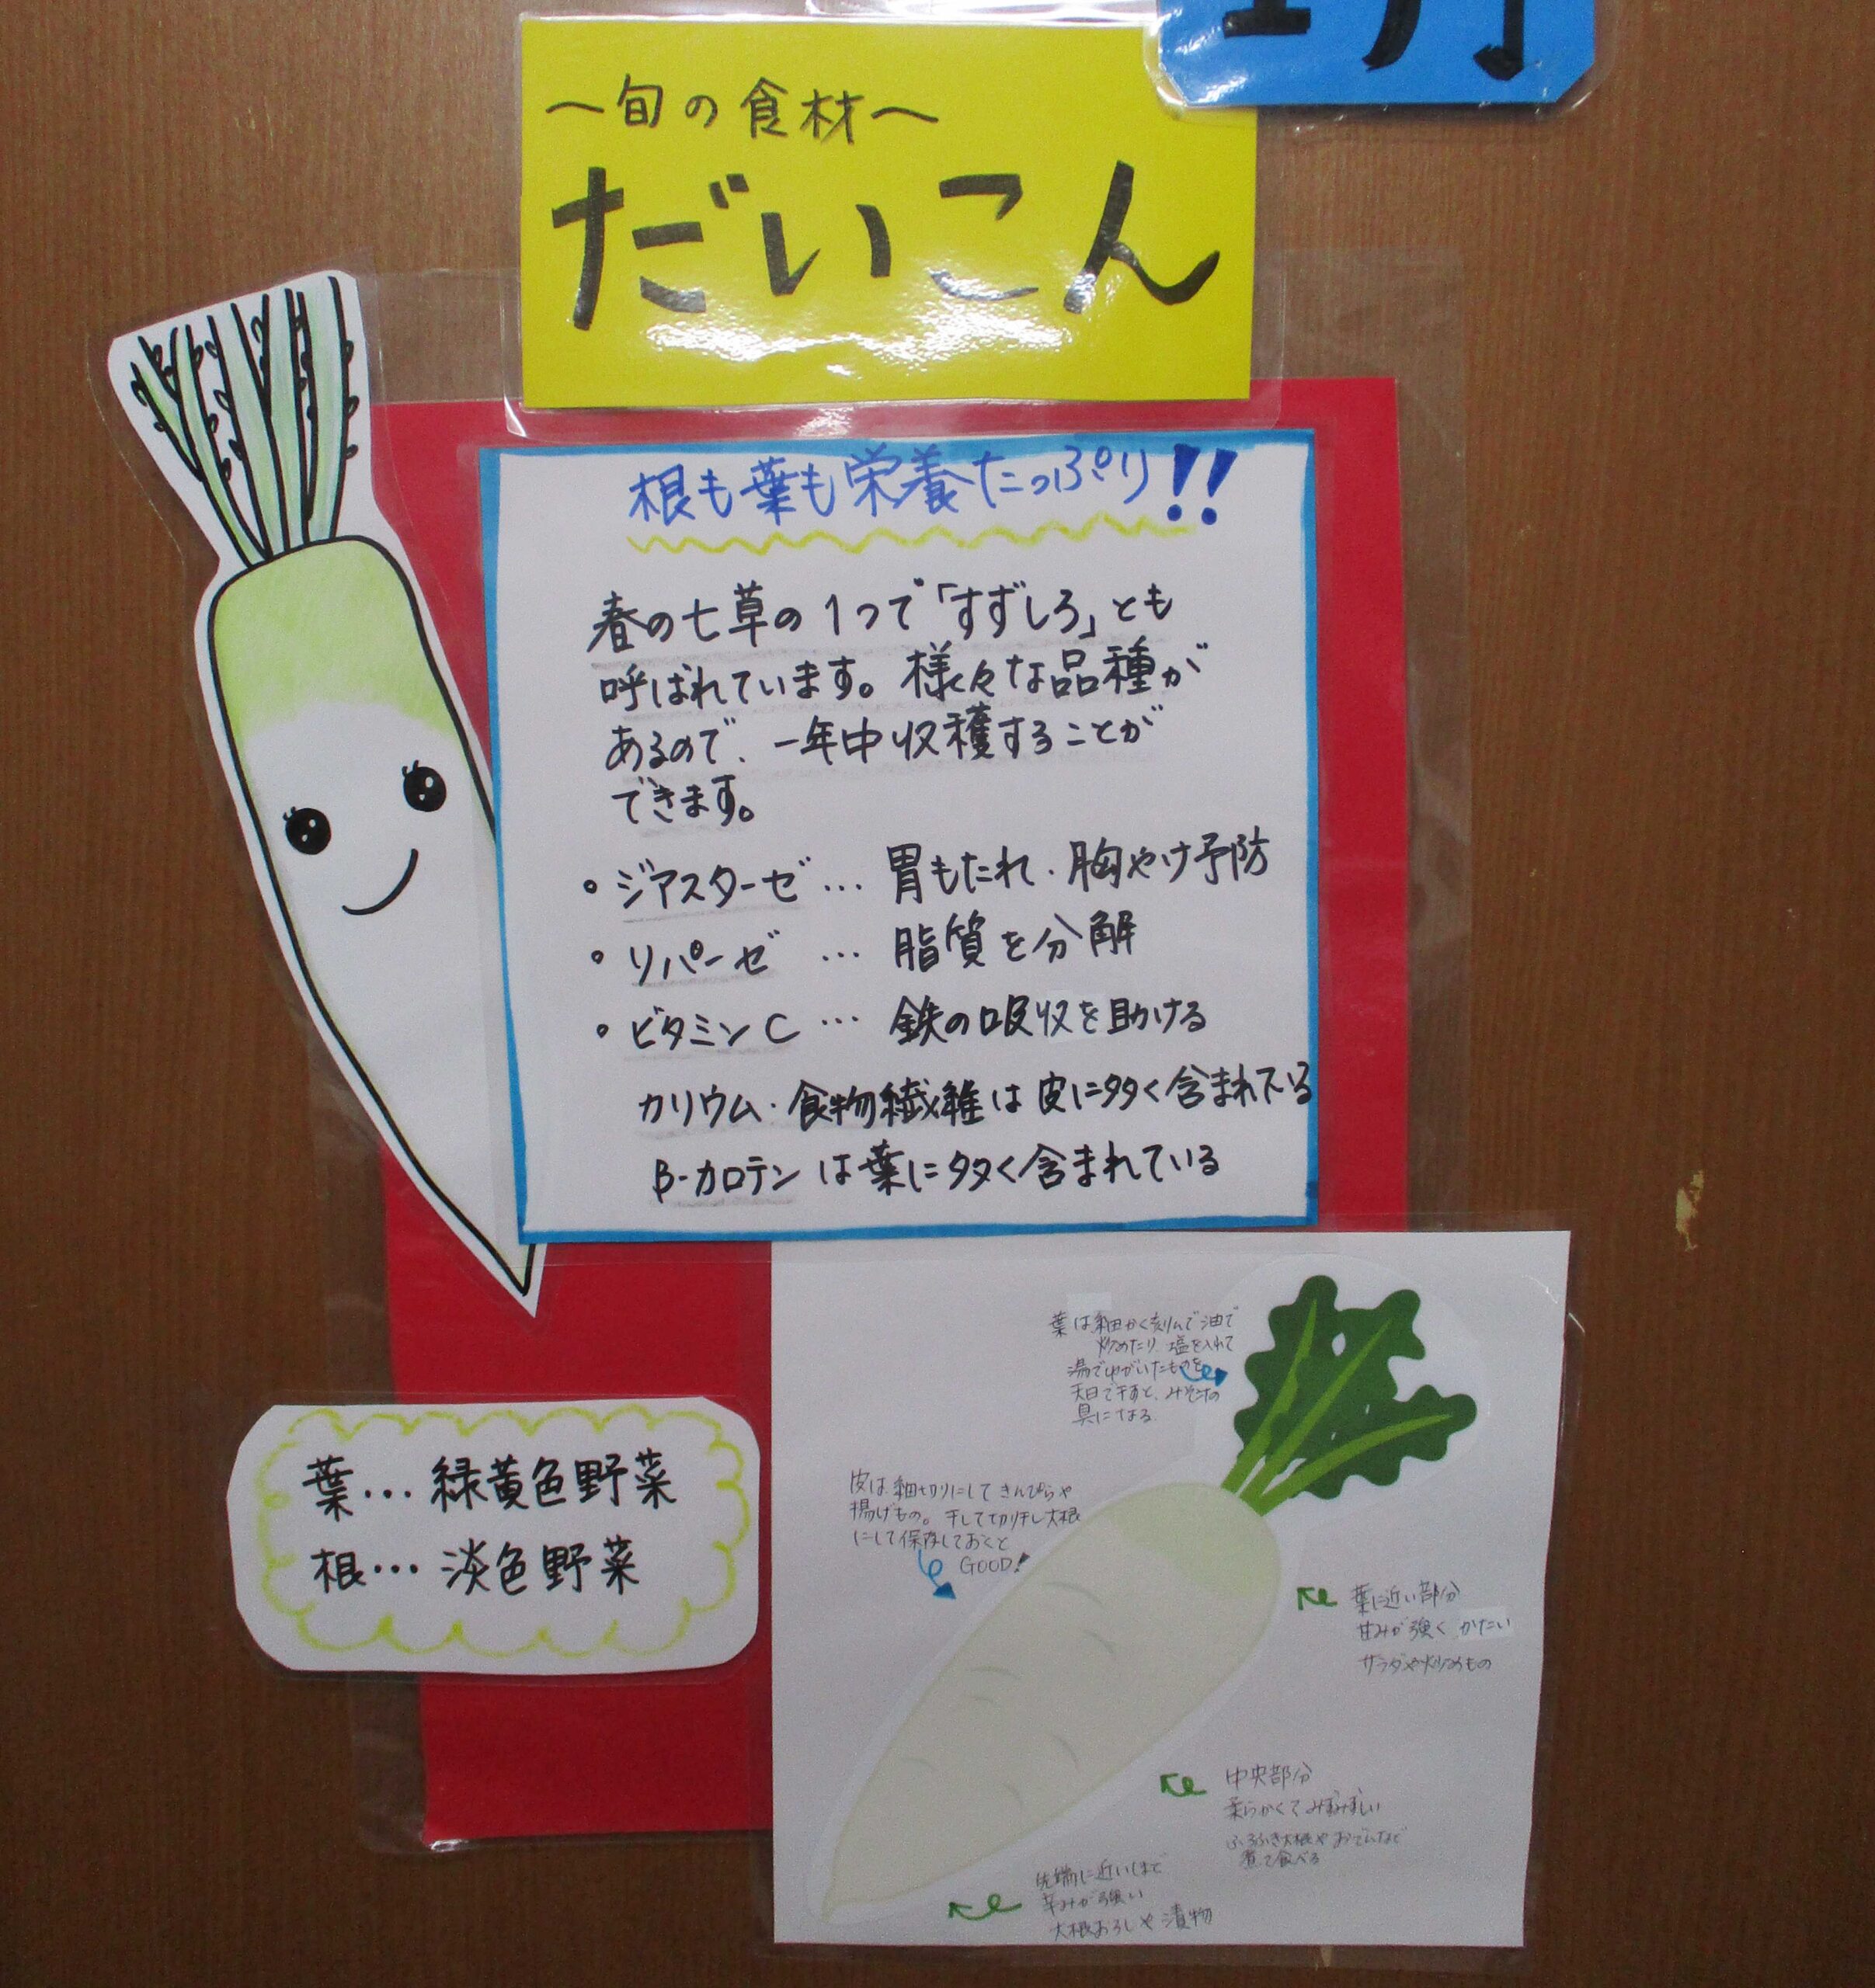 1月
〜旬の食材〜
だいこん
根も葉も栄養たっぷり!!
春の七草の1つで「すずしろ」とも
呼ばれています。様々な品種が
あるので、一年中収穫することが
できます。
・ジアスターゼ … 胃もたれ・胸やけ予防
・リパーゼ … 脂質を分解
・ビタミンC … 鉄の吸収を助ける
カリウム・食物繊維は皮に多く含まれている
β-カロテンは葉に多く含まれている
葉…緑黄色野菜
根…淡色野菜
葉は細かく刻んで油で
炒めたり、塩を入れて
湯でゆがいたものを
天日で干すと、みそ汁の
具になる。
皮は細切りにしてきんぴらや
揚げもの。干して切り干し大根
にして保存しておくと
GOOD!
葉に近い部分
甘みが強く かたい
サラダや炒めもの
中央部分
柔らかくてみずみずしい
ふろふき大根やおでんなど
煮て食べる
先端に近いほど
辛みが強い
大根おろしや漬物